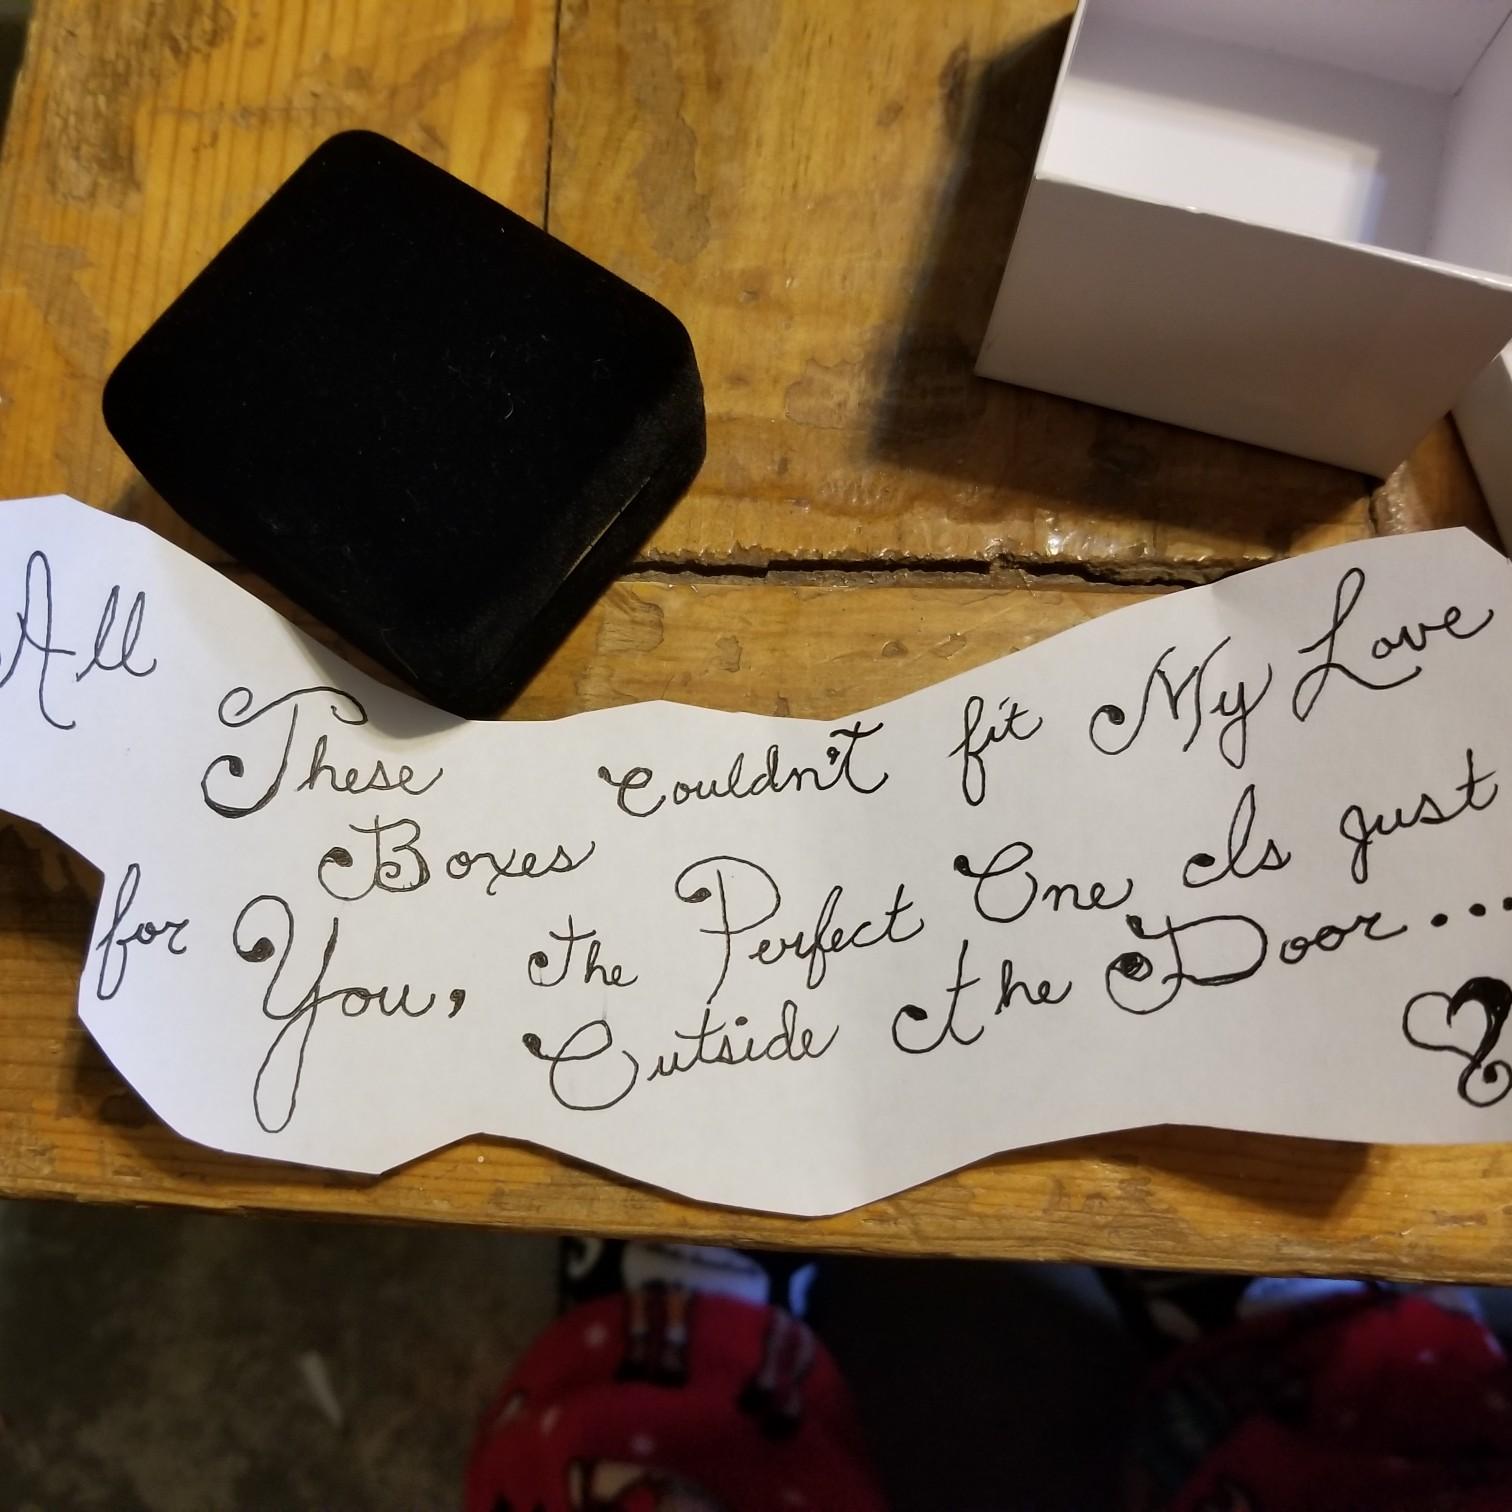 All These Boxes couldn't fit My Love
for You, the Perfect One Is just
Outside the Door...